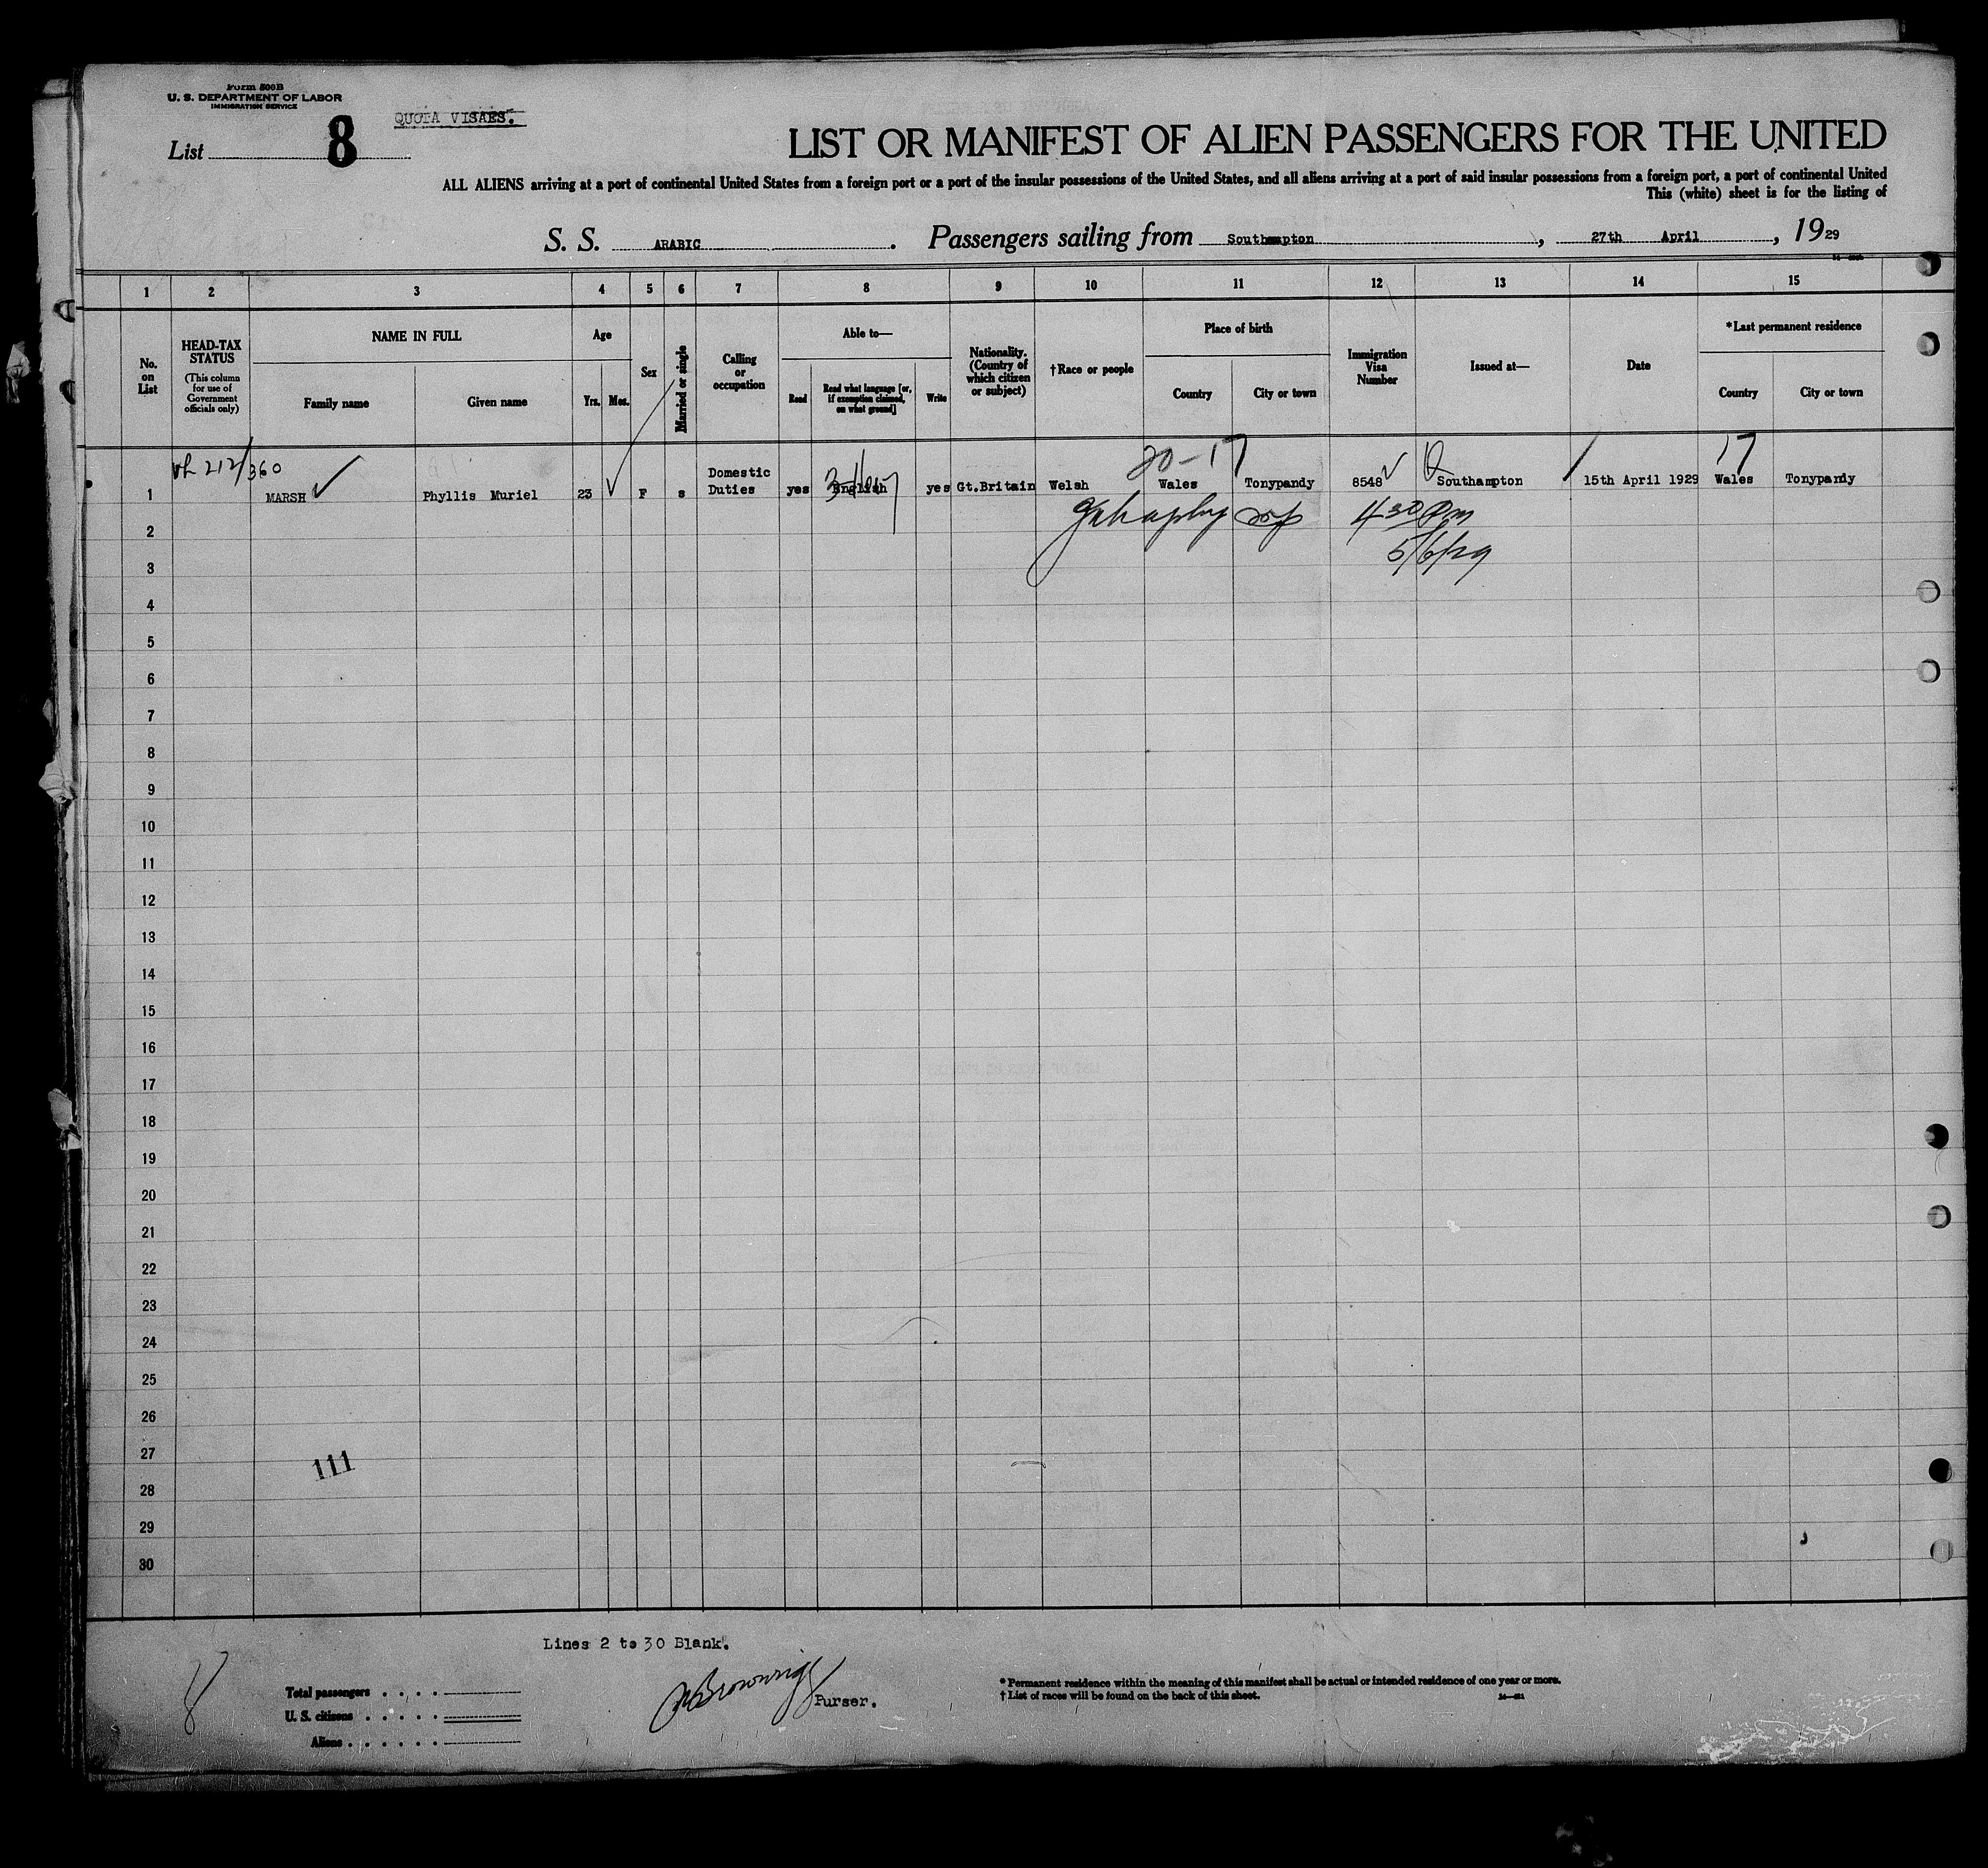 Form 500B
U. S. DEPARTMENT OF LABOR
IMMIGRATION SERVICE
QUOTA VISAES.
List 8
LIST OR MANIFEST OF ALIEN PASSENGERS FOR THE UNITED
ALL ALIENS arriving at a port of continental United States from a foreign port or a port of the insular possessions of the United States, and all aliens arriving at a port of said insular possessions from a foreign port, a port of continental United
This (white) sheet is for the listing of
S. S. ARABIC. Passengers sailing from Southampton, 27th April, 1929
1 2 3 4 5 6 7 8 9 10 11 12 13 14 15
No. on List
HEAD-TAX STATUS (This column for use of Government officials only)
NAME IN FULL
Family name
Given name
Age
Yrs. Mos.
Sex
Married or single
Calling or occupation
Able to—
Read
Read what language [or, if exemption claimed, on what ground]
Write
Nationality. (Country of which citizen or subject)
†Race or people
Place of birth
Country
City or town
Immigration Visa Number
Issued at—
Date
*Last permanent residence
Country
City or town
212/360
20-17
17
1 MARSH Phyllis Muriel 23 F s Domestic Duties yes English yes Gt.Britain Welsh Wales Tonypandy 8548 Southampton 15th April 1929 Wales Tonypandy
4 30 Pm
5/6/29
2
3
4
5
6
7
8
9
10
11
12
13
14
15
16
17
18
19
20
21
22
23
24
25
26
27
111
28
29
30
Lines 2 to 30 Blank.
8
Total passengers . . . .
U. S. citizens . . . . .
Aliens . . . . . .
Purser.
* Permanent residence within the meaning of this manifest shall be actual or intended residence of one year or more.
† List of races will be found on the back of this sheet.